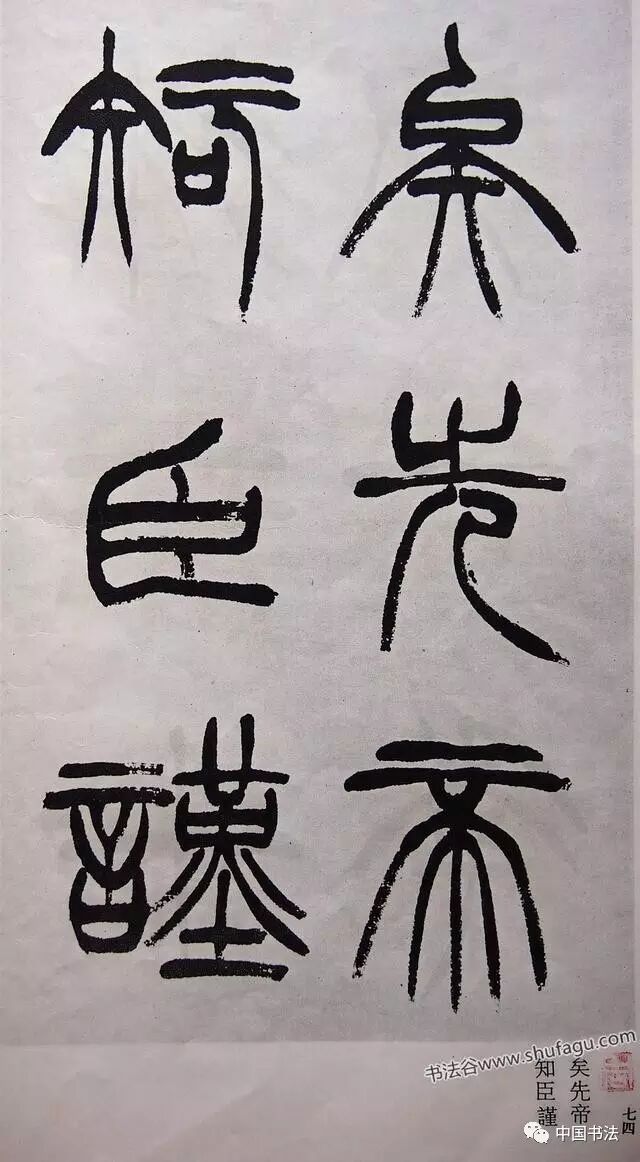 矣先帝
知臣謹
書法谷www.shufagu.com
矣先帝
知臣謹
七四
中国书法